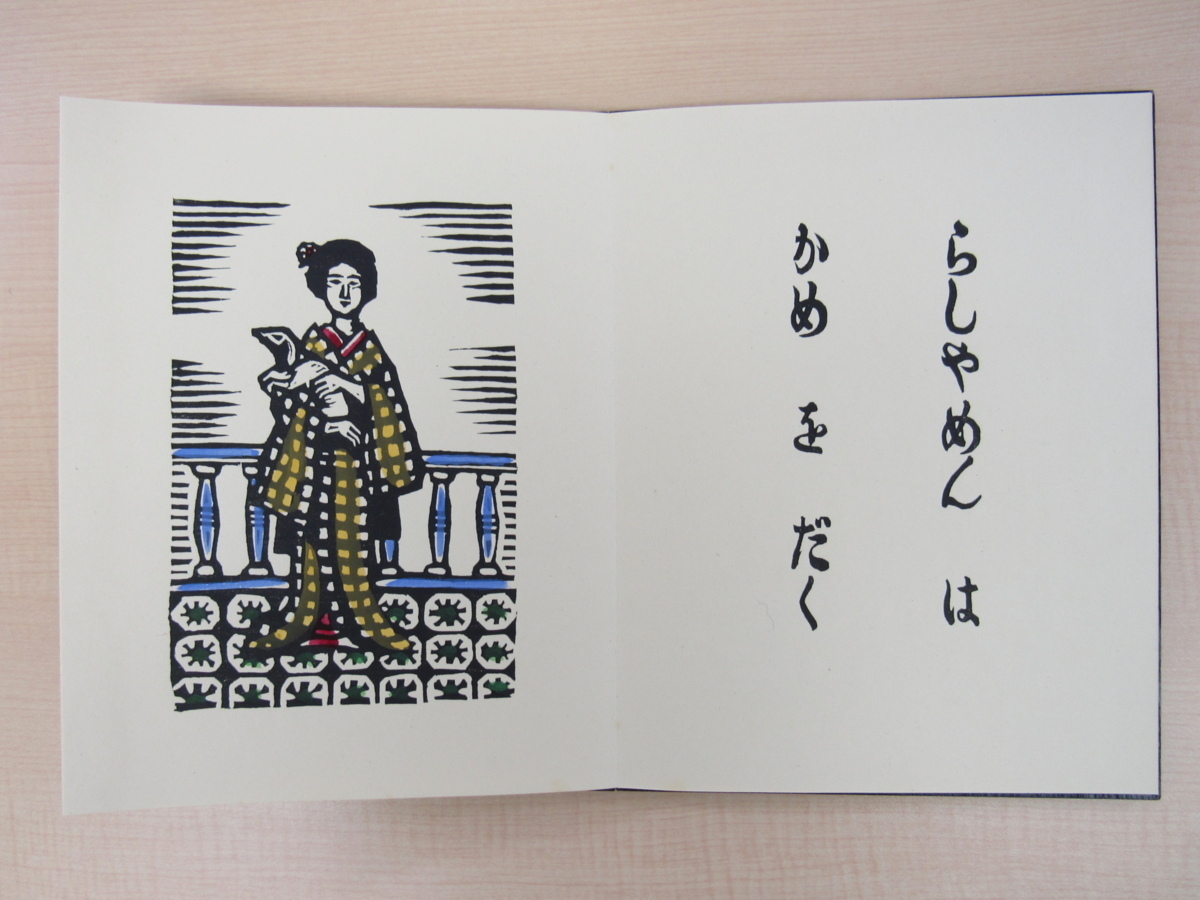 らしやめん は
かめ を だく